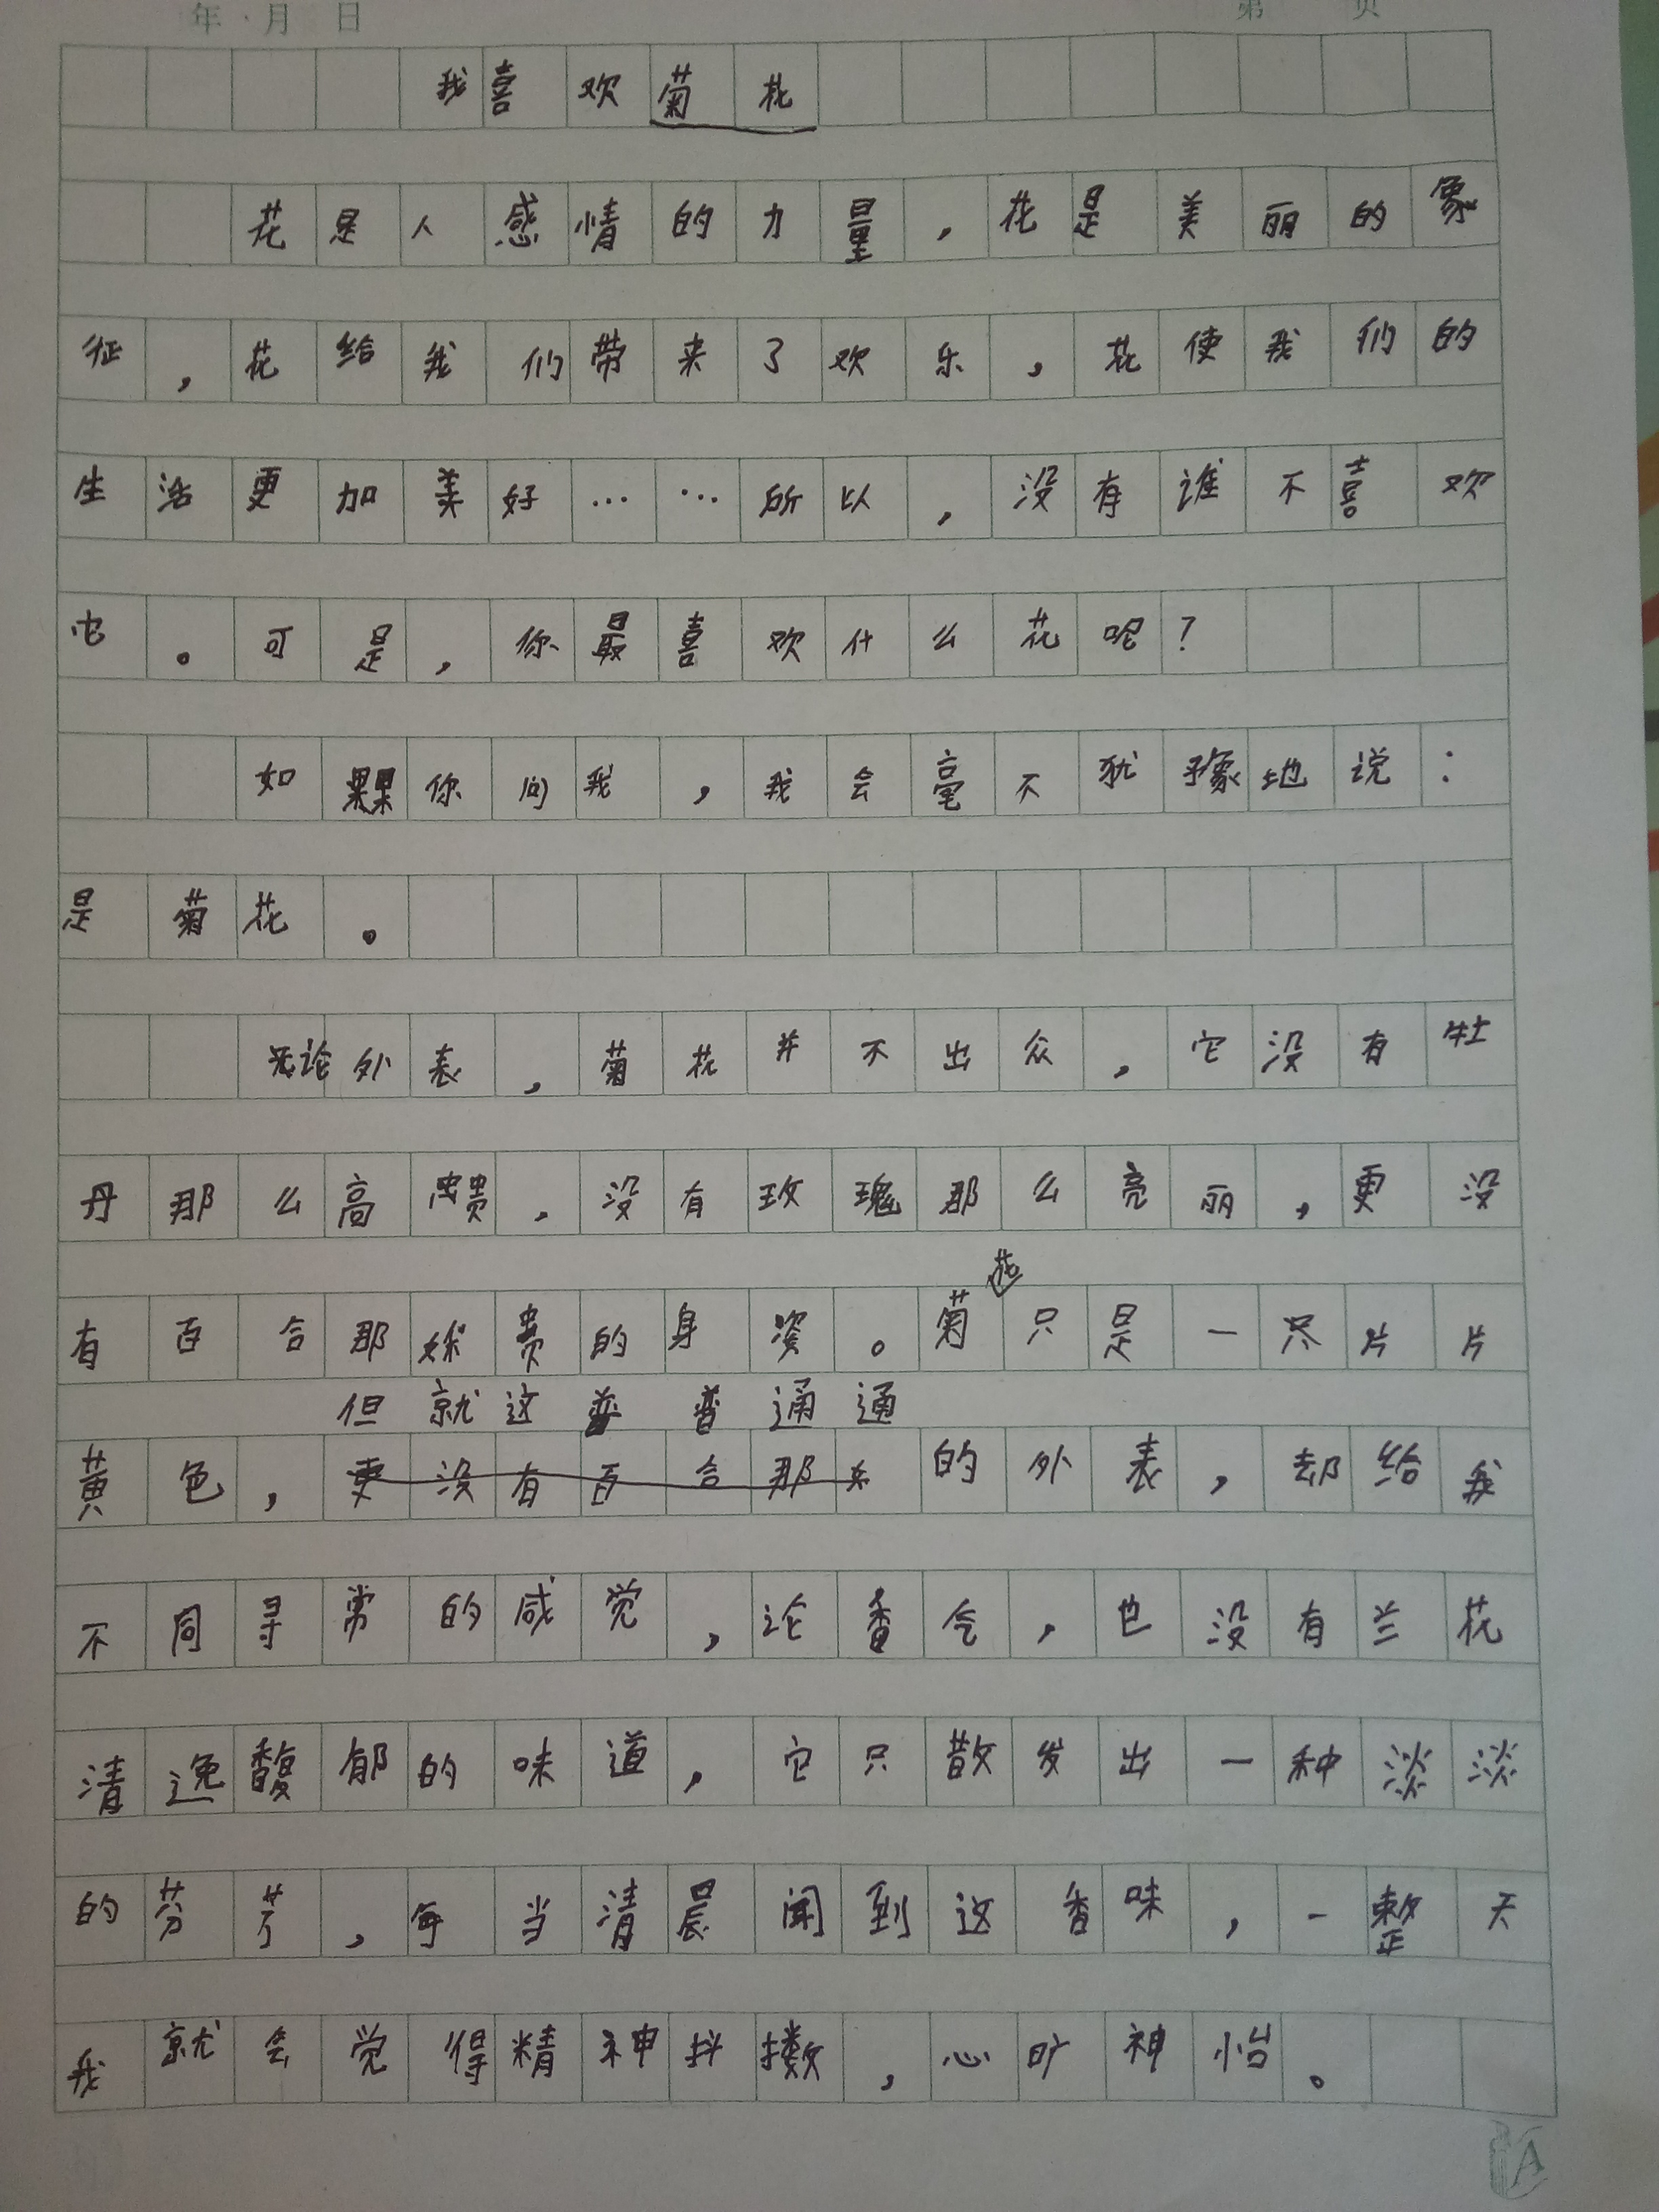 年 月 日 第 页
我喜欢菊花
花是人感情的力量,花是美丽的象
征,花给我们带来了欢乐,花使我们的
生活更加美好……所以,没有谁不喜欢
它。可是,你最喜欢什么花呢?
如果你问我,我会毫不犹豫地说:
是菊花。
无论外表,菊花并不出众,它没有牡
丹那么高贵,没有玫瑰那么亮丽,更没
花
有百合那的身姿。菊只是一片片
但就这普普通通
黄色,更没有百合那么的外表,却给我
不同寻常的感觉,论香气,也没有兰花
清逸馥郁的味道,它只散发出一种淡淡
的芬芳,每当清晨闻到这香味,一整天
我就会觉得精神抖擞,心旷神怡。